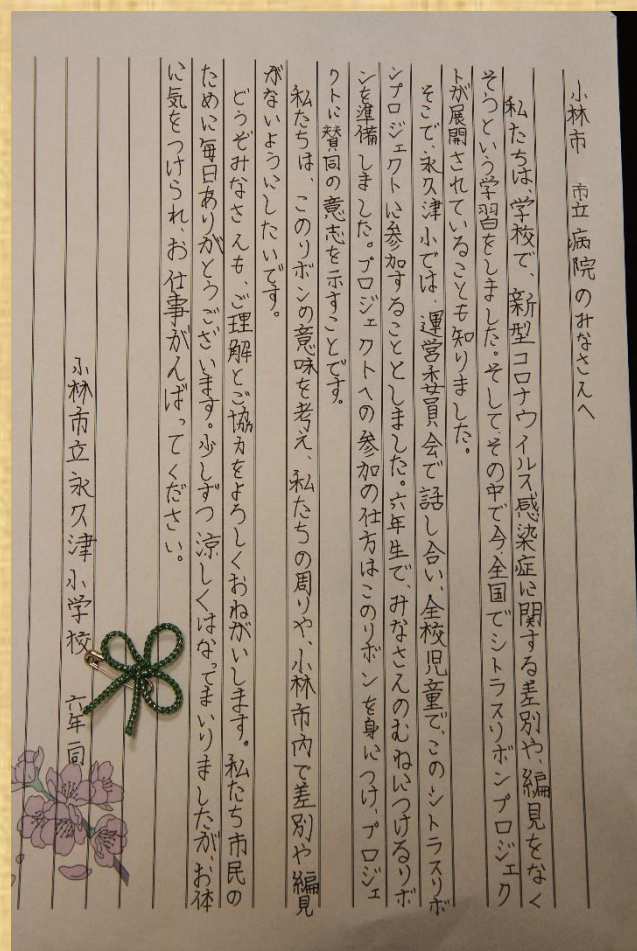 小林市　市立病院のみなさんへ
私たちは、学校で、新型コロナウイルス感染症に関する差別や、編見をなく
そうという学習をしました。そして、その中で今、全国でシトラスリボンプロジェク
トが展開されていることも知りました。
そこで、永久津小では、運営委員会で話し合い、全校児童で、このシトラスリボ
ンプロジェクトに参加することとしました。六年生で、みなさんのむねにつけるリボ
ンを準備しました。プロジェクトへの参加の仕方はこのリボンを身につけ、プロジェ
クトに賛同の意志を示すことです。
私たちは、このリボンの意味を考え、私たちの周りや、小林市内で差別や編見
がないようにしたいです。
どうぞみなさんも、ご理解とご協力をよろしくおねがいします。私たち市民の
ために毎日ありがとうございます。少しずつ涼しくはなってまいりましたが、お体
に気をつけられ、お仕事がんばってください。
小林市立永久津小学校　六年一同